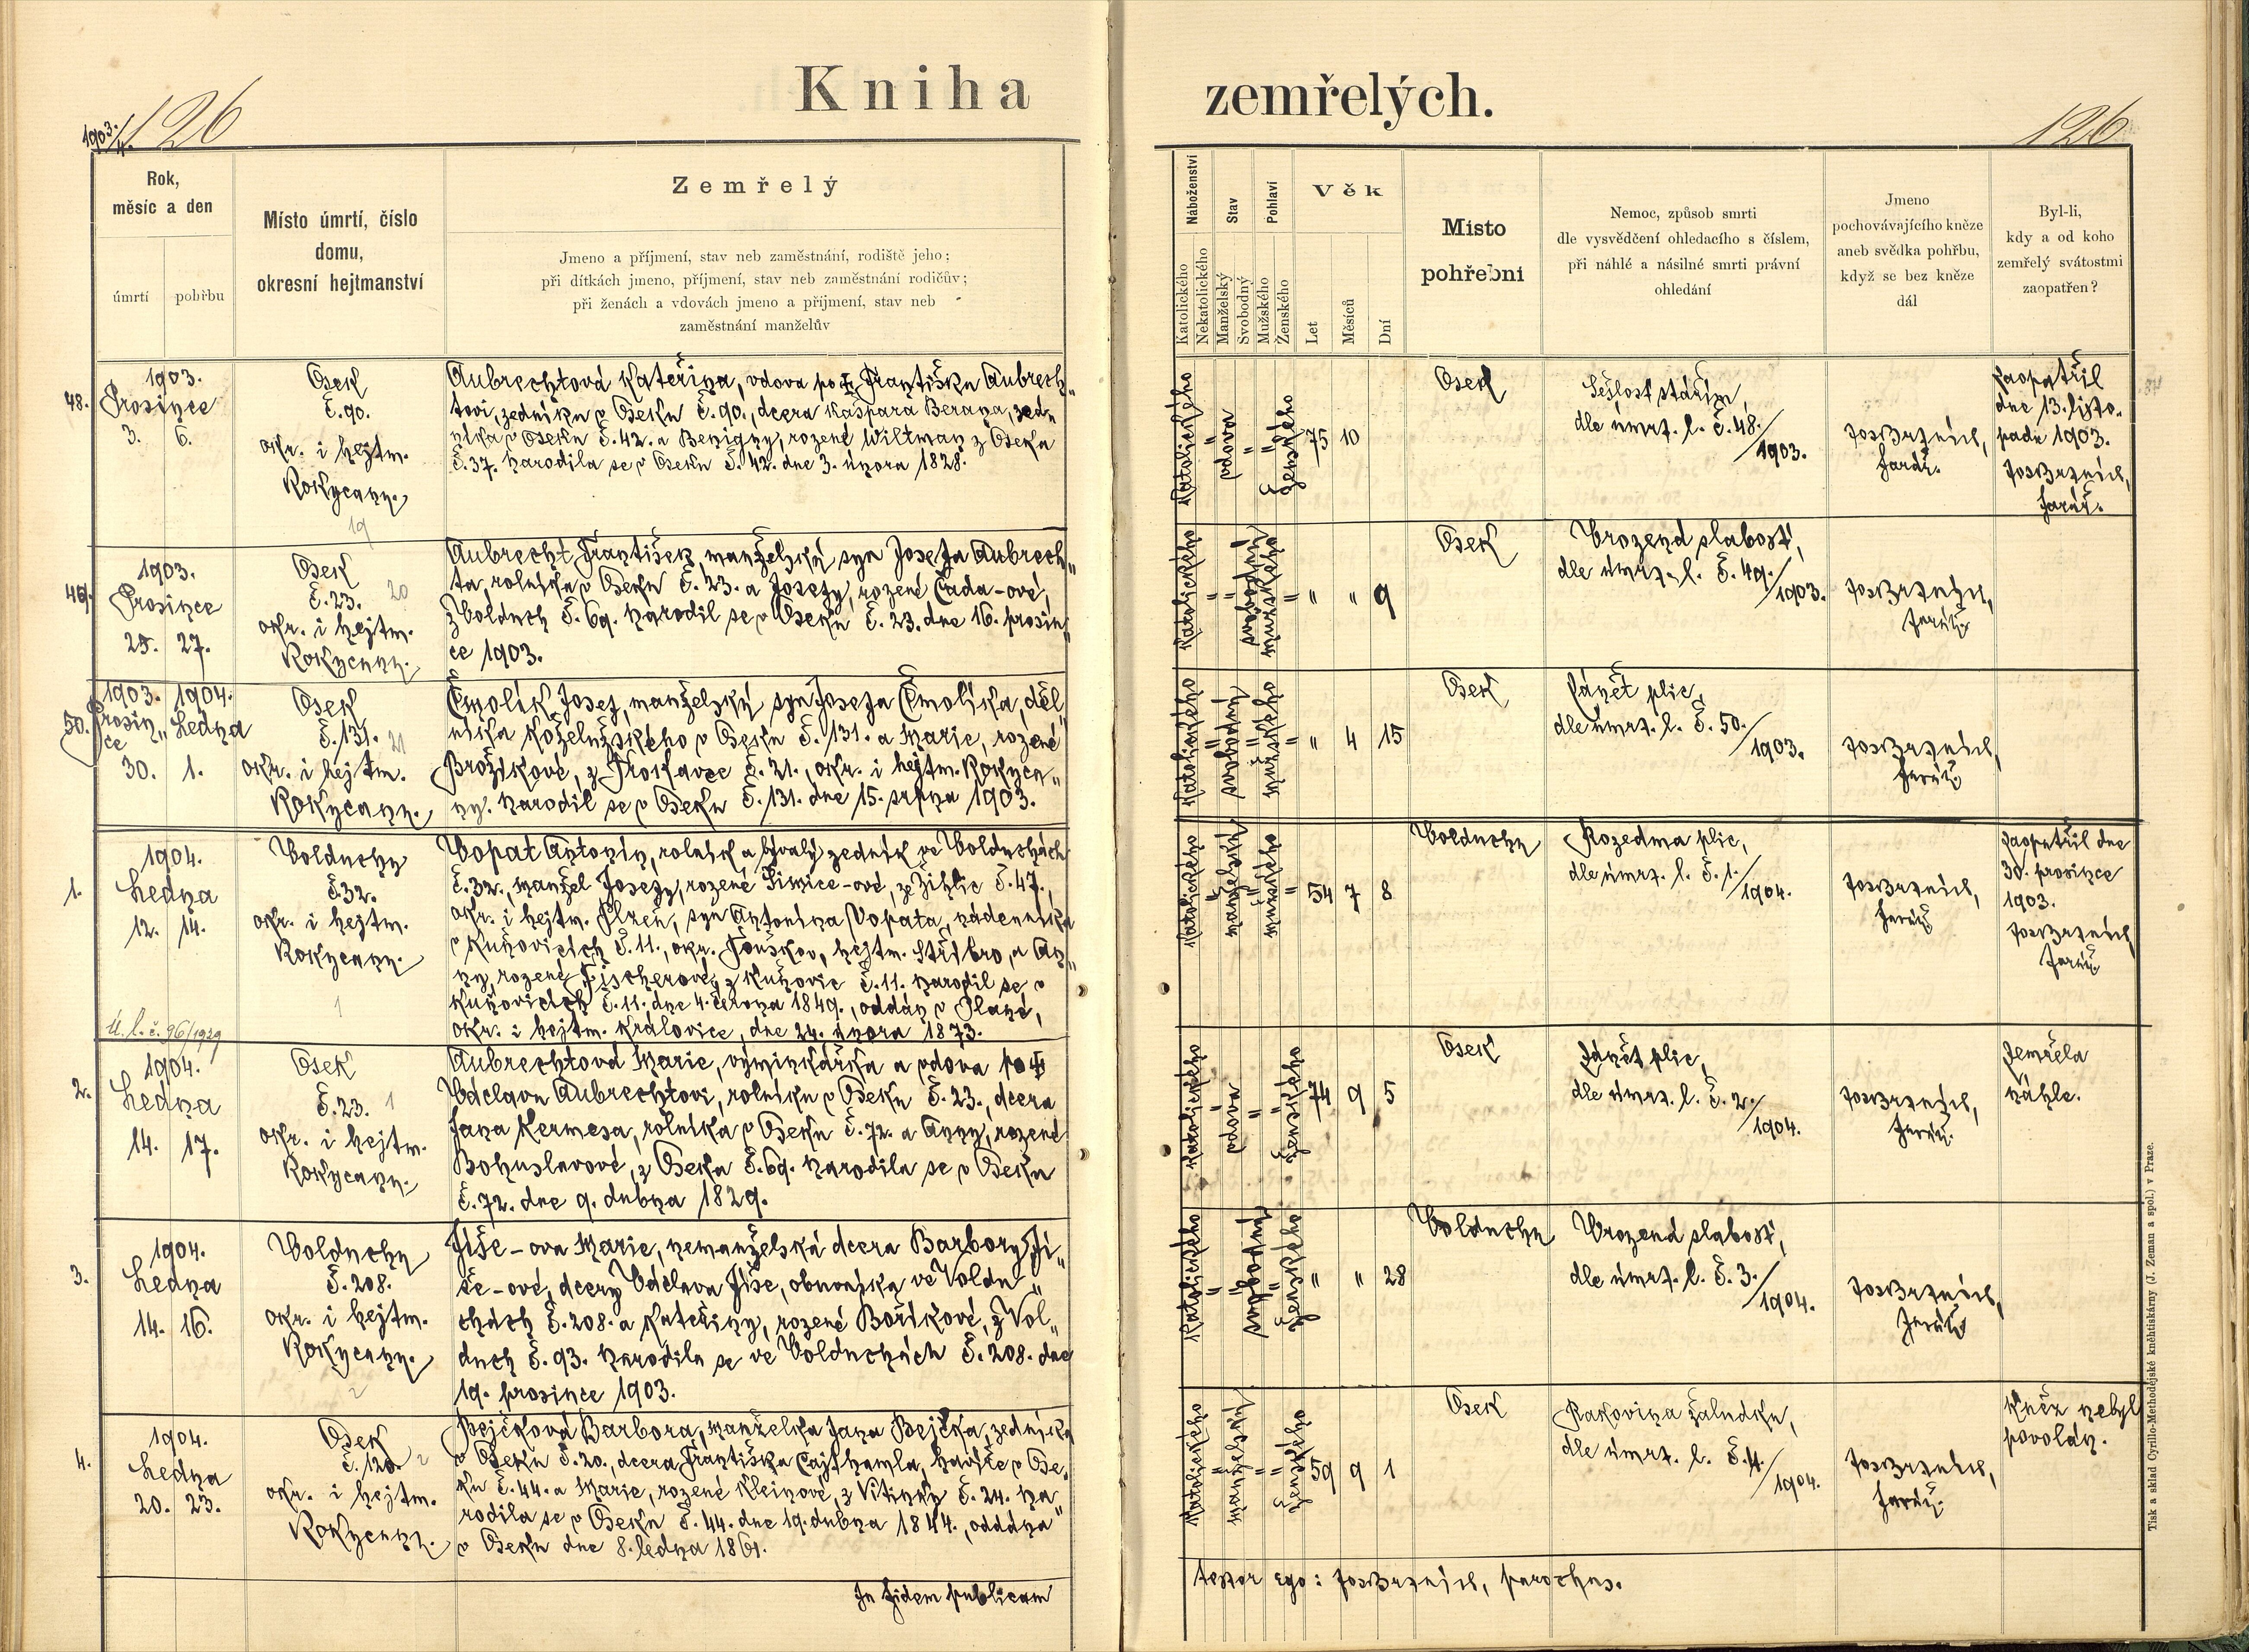 Kniha zemřelých.
1903/4. 126
126
Rok,
měsíc a den
úmrtí
pohřbu
Místo úmrtí, číslo
domu,
okresní hejtmanství
Zemřelý
Jmeno a příjmení, stav neb zaměstnání, rodiště jeho;
při dítkách jmeno, příjmení, stav neb zaměstnání rodičův;
při ženách a vdovách jmeno a příjmení, stav neb
zaměstnání manželův
Náboženství
Katolického
Nekatolického
Stav
Manželský
Svobodný
Pohlaví
Mužského
Ženského
Věk
Let
Měsíců
Dní
Místo
pohřební
Nemoc, způsob smrti
dle vysvědčení ohledacího s číslem,
při náhlé a násilné smrti právní
ohledání
Jmeno
pochovávajícího kněze
aneb svědka pohřbu,
když se bez kněze
dál
Byl-li,
kdy a od koho
zemřelý svátostmi
zaopatřen?
48.
1903.
Prosince
3. 6.
Osek
č. 90.
okr. i hejtm.
Rokycany.
19
Aubrechtová Kateřina, vdova po † Františku Aubrech„
tovi, zedníku v Oseku č. 90., dcera Kašpara Berana, zed„
níka v Oseku č. 42. a Benigny, rozené Wiltman z Oseka
č. 37. Narodila se v Oseku č. 42. dne 3. února 1828.
Katolického
vdova
ženského
75 10
Osek
Sešlost stářím,
dle úmrt. l. č. 48./1903.
Jos. Brznich,
farář.
Zaopatřil
dne 13. listo„
padu 1903.
Jos. Brznich,
farář.
49.
1903.
Prosince
25. 27.
Osek
č. 23. 20
okr. i hejtm.
Rokycany.
Aubrecht František, manželský syn Josefa Aubrech„
ta, rolníka v Oseku č. 23. a Josefy, rozené Čada-ové,
z Volduch č. 69. Narodil se v Oseku č. 23. dne 16. prosin„
ce 1903.
Katolického
svobodný
mužského
" " 9
Osek
Vrozená slabost,
dle úmrt. l. č. 49./1903.
Jos. Brznich,
farář.
50.
1903. 1904.
Prosin„ Ledna
ce
30. 1.
Osek
č. 131. 21
okr. i hejtm.
Rokycany.
Čmolík Josef, manželský syn Josefa Čmolíka, děl„
níka koželužského v Oseku č. 131. a Marie, rozené
Brožíkové, z Trokavce č. 21., okr. i hejtm. Rokyca„
ny. Narodil se v Oseku č. 131. dne 15. srpna 1903.
Katolického
svobodný
mužského
" 4 15
Osek
Zánět plic,
dle úmrt. l. č. 50./1903.
Jos. Brznich,
farář.
1.
1904.
Ledna
12. 14.
Ú. l. č. 96/1929
Volduchy
č. 32.
okr. i hejtm.
Rokycany.
1
Vopat Antonín, rolník a bývalý zedník ve Volduchách
č. 32., manžel Josefy, rozené Šimice-ové, ze Žihlic č. 47.,
okr. i hejtm. Plzeň, syn Antonína Vopata, nádenníka
v Kuňovicích č. 11., okr. Touškov, hejtm. Stříbro, a An„
ny, rozené Fischerové, z Kuňovic č. 11. Narodil se v
Kuňovicích č. 11. dne 4. června 1849., oddán v Plané,
okr. i hejtm. Kralovice, dne 24. února 1873.
Katolického
manželský
mužského
54 7 8
Volduchy
Rozedma plic,
dle úmrt. l. č. 1./1904.
Jos. Brznich,
farář.
Zaopatřil dne
30. prosince
1903.
Jos. Brznich,
farář.
2.
1904.
Ledna
14. 17.
Osek
č. 23. 1
okr. i hejtm.
Rokycany.
Aubrechtová Marie, výminkářka a vdova po †
Václavu Aubrechtovi, rolníku v Oseku č. 23., dcera
Jana Kermesa, rolníka v Oseku č. 72. a Anny, rozené
Bohuslavové, z Oseka č. 69. Narodila se v Oseku
č. 72. dne 9. dubna 1829.
Katolického
vdova
ženského
74 9 5
Osek
Zánět plic,
dle úmrt. l. č. 2./1904.
Jos. Brznich,
farář.
Zemřela
náhle.
3.
1904.
Ledna
14. 16.
Volduchy
č. 208.
okr. i hejtm.
Rokycany.
2
Jíše-ova Marie, nemanželská dcera Barbory Jí„
še-ové, dcery Václava Jíše, obuvníka ve Voldu„
chách č. 208. a Kateřiny, rozené Boříkové, z Vol„
duch č. 93. Narodila se ve Volduchách č. 208. dne
19. prosince 1903.
Katolického
svobodná
ženského
" " 28
Volduchy
Vrozená slabost,
dle úmrt. l. č. 3./1904.
Jos. Brznich,
farář.
4.
1904.
Ledna
20. 23.
Osek
č. 120. 2
okr. i hejtm.
Rokycany.
Bejčková Barbora, manželka Jana Bejčka, zedníka
v Oseku č. 20., dcera Františka Cajthamla, havíře v Ose„
ku č. 44. a Marie, rozené Kleinové, z Vitinky č. 24. Na„
rodila se v Oseku č. 44. dne 19. dubna 1844., oddána
v Oseku dne 8. ledna 1861.
Katolického
manželský
ženského
59 9 1
Osek
Rakovina žaludku,
dle úmrt. l. č. 4./1904.
Jos. Brznich,
farář.
Kněz nebyl
povolán.
In fidem publicam
testor ego: Jos. Brznich, parochus.
Tisk a sklad Cyrillo-Methodějské knihtiskárny (J. Zeman a spol.) v Praze.